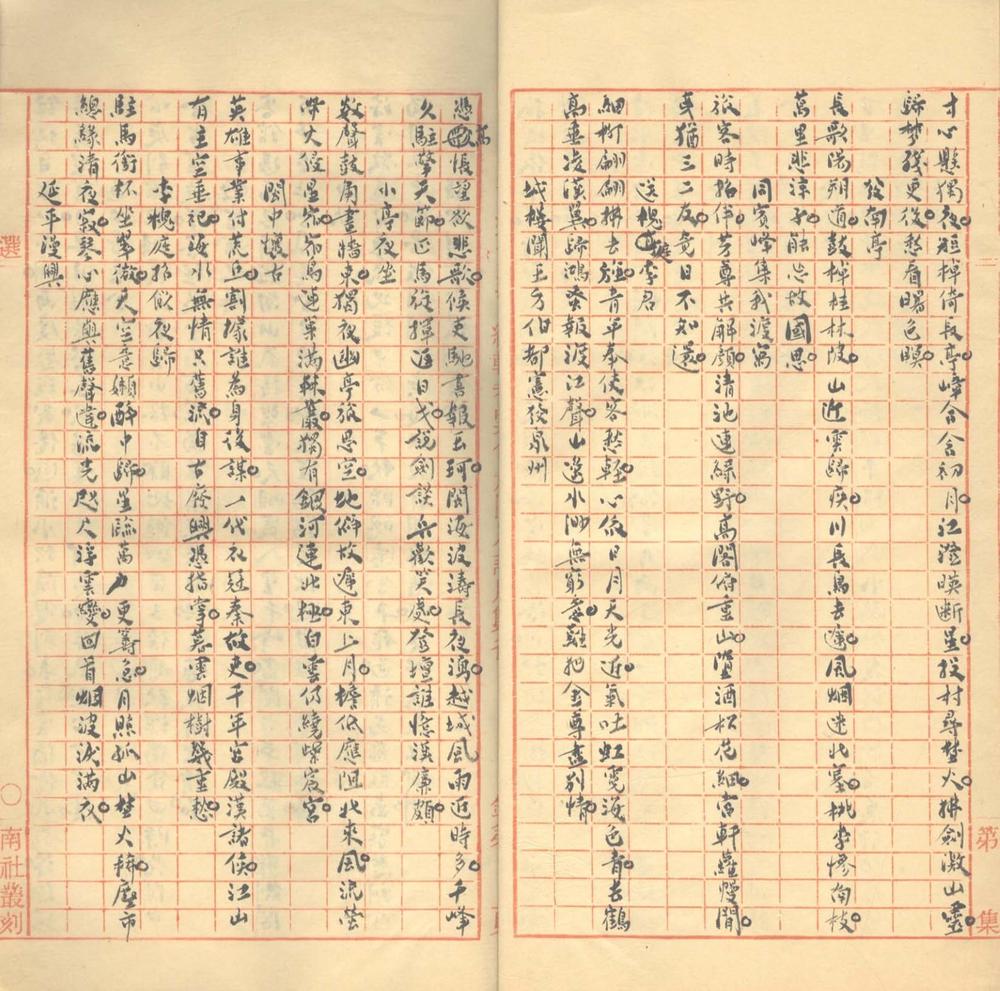 寸心懸獨夜短棹倚長亭嶂合含初月江澄暎斷星投村尋埜火拂劍激山靈
歸夢殘更後愁看曙色暝
發南亭
長歌陽朔道鼓棹桂林陂山近雲歸疾川長鳥去遲風烟迷北塞桃李慘南枝
萬里悲涼永能忘故國思
同賓峰集我澹寓
孤客時招伴芳尊共解顏清池連綠野高閣俯重山隕酒松花細當軒蘿幔閒
或猶三二友竟日不知還
送槐庭李君
細柳翩翩拂去旌青年奉使客愁輕心依日月天光近氣吐虹霓海色青去鶴
高垂淩漢翼歸鴻索報渡江聲山遙水泐無窮意難把金尊盡別情
城樓闌王方伯都憲發泉州
憑高悵望欲悲歌候吏馳書報玉珂閩海波濤長夜湧越城風雨近時多千峰
久駐擎天節匹馬從揮返日戈說劍談兵歡笑處登壇誰憶漢廉頗
小亭夜坐
數聲鼓角畫牆東獨夜幽亭張思空地僻故遲東上月檐低應阻北來風流螢
帶火侵星宿飛鳥連巢滿棘叢獨有銀河連北極白雲仍繞紫宸宮
閩中懷古
英雄事業付荒丘割據誰為身後謀一代衣冠秦故吏千年宮殿漢諸侯江山
有主空垂祀海水無情只舊流自古廢興憑指掌暮雲烟樹幾重愁
李槐庭招飲夜歸
駐馬銜杯坐翠微天空意嬾醉中歸星臨萬力更籌急月照孤山埜火稀廛市
總緣清夜寂琴心應與舊聲違流光咫尺浮雲變回首烟波淚滿衣
延平漫興
選
南社叢刻
第
集